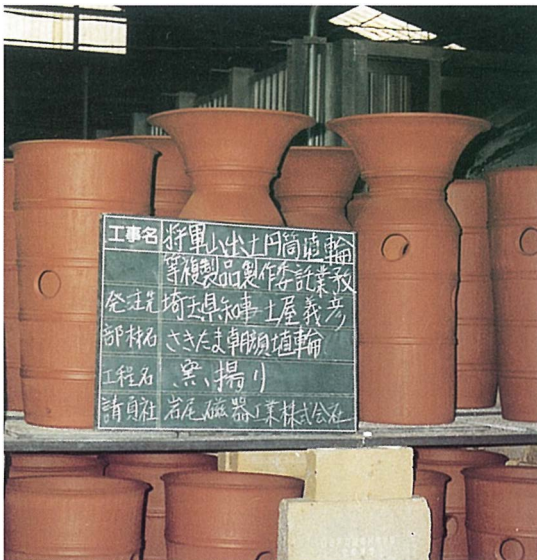 工事名 将軍山出土円筒埴輪
等複製品製作委託業務
発注先 埼玉県知事 土屋義彦
部材名 さきたま朝顔埴輪
工程名 窯揚り
請負社 岩尾磁器工業株式会社